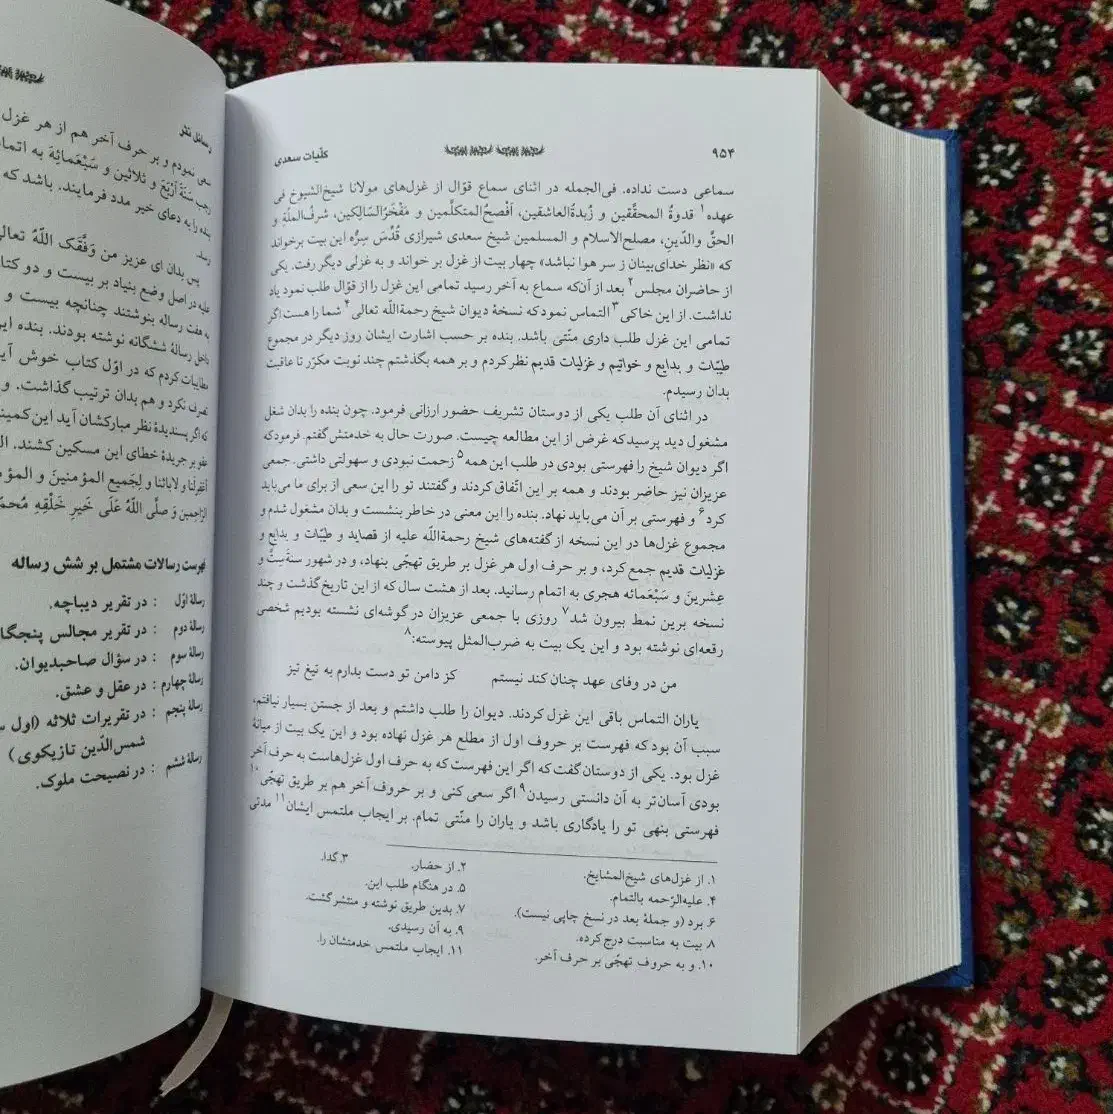 ۹۵۴
کلّیات سعدی
سماعی دست نداده. فی‌الجمله در اثنای سماع قوّال از غزل‌های مولانا شیخ‌الشیوخ فی
عهده۱ قدوةُ المحقّقین و زُبدةُ‌العاشقین، اَفْصحُ‌المتکلّمین و مَفْخَرُالسّالِکین، شرفُ‌الملّةِ و
الحقّ والدّینِ، مصلح‌الاسلام و المسلمین شیخ سعدی شیرازی قُدِّسَ سِرُّه این بیت برخواند
که «نظر خدای‌بینان ز سر هوا نباشد» چهار بیت از غزل بر خواند و به غزلی دیگر رفت. یکی
از حاضران مجلس۲ بعد از آن‌که سماع به آخر رسید تمامی این غزل را از قوّال طلب نمود یاد
نداشت. از این خاکی۳ التماس نمود که نسخهٔ دیوان شیخ رحمةاللّه تعالی۴ شما را هست اگر
تمامی این غزل طلب داری منّتی باشد. بنده بر حسب اشارت ایشان روز دیگر در مجموع
طیّبات و بدایع و خواتیم و غزلیات قدیم نظر کردم و بر همه بگذشتم چند نوبت مکرّر تا عاقبت
بدان رسیدم.
در اثنای آن طلب یکی از دوستان تشریف حضور ارزانی فرمود. چون بنده را بدان شغل
مشغول دید پرسید که غرض از این مطالعه چیست. صورت حال به خدمتش گفتم. فرمود که
اگر دیوان شیخ را فهرستی بودی در طلب این همه۵ زحمت نبودی و سهولتی داشتی. جمعی
عزیزان نیز حاضر بودند و همه بر این اتّفاق کردند و گفتند تو را این سعی از برای ما می‌باید
کرد۶ و فهرستی بر آن می‌باید نهاد. بنده را این معنی در خاطر بنشست و بدان مشغول شدم و
مجموع غزل‌ها در این نسخه از گفته‌های شیخ رحمةاللّه علیه از قصاید و طیّبات و بدایع و
غزلیات قدیم جمع کرد، و بر حرف اول هر غزل بر طریق تهجّی بنهاد، و در شهور سنهٔ سِتّ و
عِشرینَ و سَبْعَمائه هجری به اتمام رسانید. بعد از هشت سال که از این تاریخ گذشت و چند
نسخه برین نمط بیرون شد۷ روزی با جمعی عزیزان در گوشه‌ای نشسته بودیم شخصی
رقعه‌ای نوشته بود و این یک بیت به ضرب‌المثل پیوسته:۸
من در وفای عهد چنان کند نیستم کز دامن تو دست بدارم به تیغ تیز
یاران التماس باقی این غزل کردند. دیوان را طلب داشتم و بعد از جستن بسیار نیافتم،
سبب آن بود که فهرست بر حروف اول از مطلع هر غزل نهاده بود و این یک بیت از میانهٔ
غزل بود. یکی از دوستان گفت که اگر این فهرست که به حرف اول غزل‌هاست به حرف آخر
بودی آسان‌تر به آن دانستی رسیدن۹ اگر سعی کنی و بر حروف آخر هم بر طریق تهجّی۱۰
فهرستی بنهی تو را یادگاری باشد و یاران را منّتی تمام. بر ایجاب ملتمس ایشان۱۱ مدتی
۱. از غزل‌های شیخ‌المشایخ. ۲. از حضار. ۳. گدا.
۴. علیه‌الرّحمه بالتمام. ۵. در هنگام طلب این.
۶. برد (و جملهٔ بعد در نسخ چاپی نیست). ۷. بدین طریق نوشته و منتشر گشت.
۸. بیت به مناسبت درج کرده. ۹. به آن رسیدی.
۱۰. و به حروف تهجّی بر حرف آخر. ۱۱. ایجاب ملتمس خدمتشان را.
سعی نمودم و بر حرف آخر هم از هر غزل
رجب سَنَةَ اَرْبَعَ و ثلاثین و سَبْعَمائةَ به
بنده را به دعای خیر مدد فرمایند. باشد که
رسد.
پس بدان ای عزیز من وَفَّقَک اللّهُ تعالی
علیه در اصل وضع بنیاد بر بیست و دو
به هفت رساله بنوشتند چنانچه بیست و
داخل رسالهٔ ششگانه نوشته بودند. بنده
مطایبات کردم که در اوّل کتاب خوش
تصرف نکرد و هم بدان ترتیب گذاشت. و
که اگر پسندیدهٔ نظر مبارکشان آید این
عفو بر جریدهٔ خطای این مسکین کشند.
و لآبائنا و لِجَمیع المؤمنینَ و
الرّاحمین وَ صلَّی اللّهُ عَلَی خَیرِ خَلْقِهِ
فهرست رسالات مشتمل بر شش رساله
رسالهٔ اوّل : در تقریر دیباچه.
رسالهٔ دوم : در تقریر مجالس
رسالهٔ سوم : در سؤال صاحبدیوان.
رسالهٔ چهارم : در عقل و عشق.
رسالهٔ پنجم : در تقریرات ثلاثه (اول
شمس‌الدّین تازیکوی)
رسالهٔ ششم : در نصیحت ملوک.